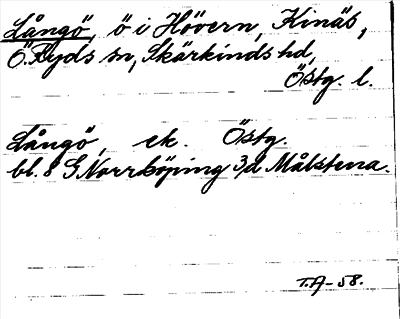 Långö, ö i Hövern, Kinäs,
Ö. Ryds sn, Skärkinds hd,
Östg. l.
Långö, ek. Östg.
bl. 8 G Norrköping 3d Målstena.
T.A-58.